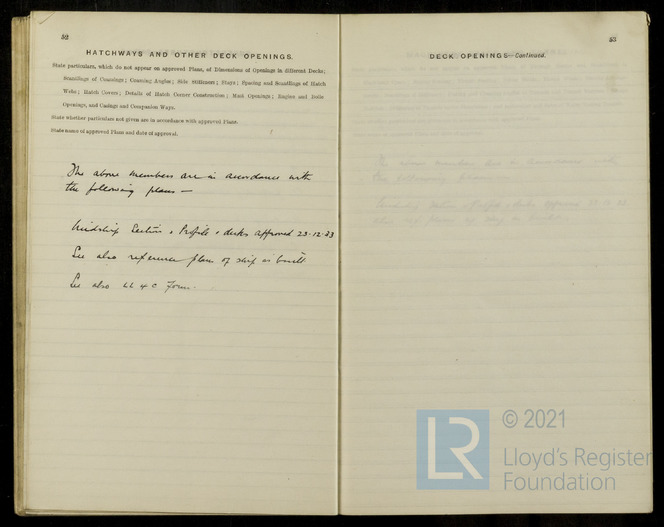 52
HATCHWAYS AND OTHER DECK OPENINGS.
State particulars, which do not appear on approved Plans, of Dimensions of Openings in different Decks;
Scantlings of Coamings; Coaming Angles; Side Stiffeners; Stays; Spacing and Scantlings of Hatch
Webs; Hatch Covers; Details of Hatch Corner Construction; Mast Openings; Engine and Boiler
Openings, and Casings and Companion Ways.
State whether particulars not given are in accordance with approved Plans.
State name of approved Plans and date of approval.
The above members are in accordance with
the following plans —
Midship Section, Profile & decks approved 23-12-33
See also reference plans of ship as built
See also LL 4 C Form.
53
DECK OPENINGS—Continued.
LR
© 2021
Lloyd's Register
Foundation